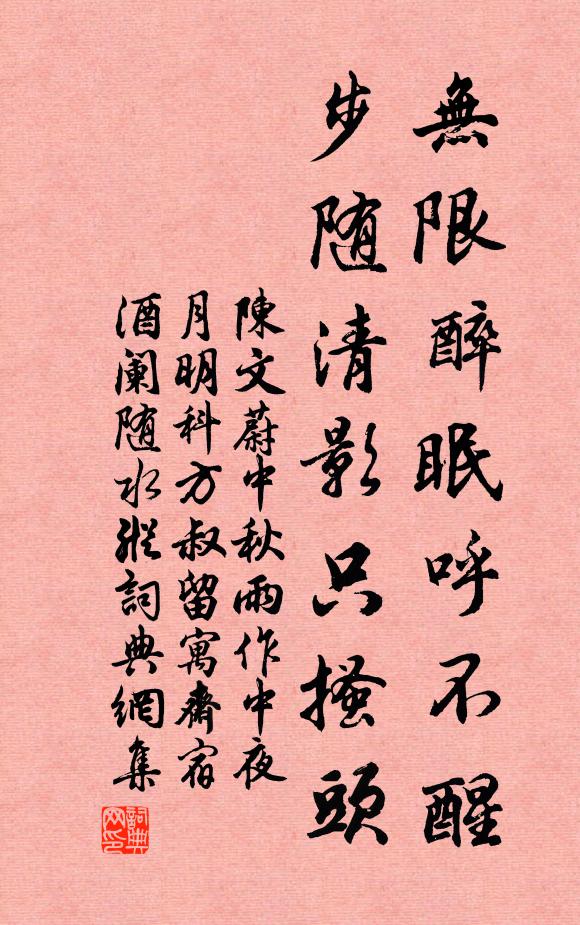 無限醉眠呼不醒
步随清影只搔頭
陳文蔚中秋雨作中夜
月明科方叔留寓齋宿
酒闌随水縱詞典網集
詞典网印